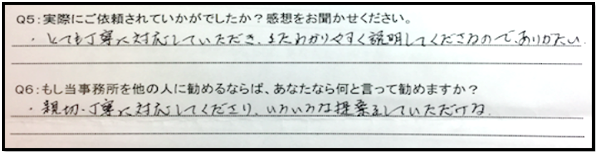 Q5:実際にご依頼されていかがでしたか?感想をお聞かせください。
・とても丁寧に対応していただき、またわかりやすく説明してくださるので、ありがたい.
Q6:もし当事務所を他の人に勧めるならば、あなたなら何と言って勧めますか?
・親切・丁寧に対応してくださり、いろいろな提案をしていただける